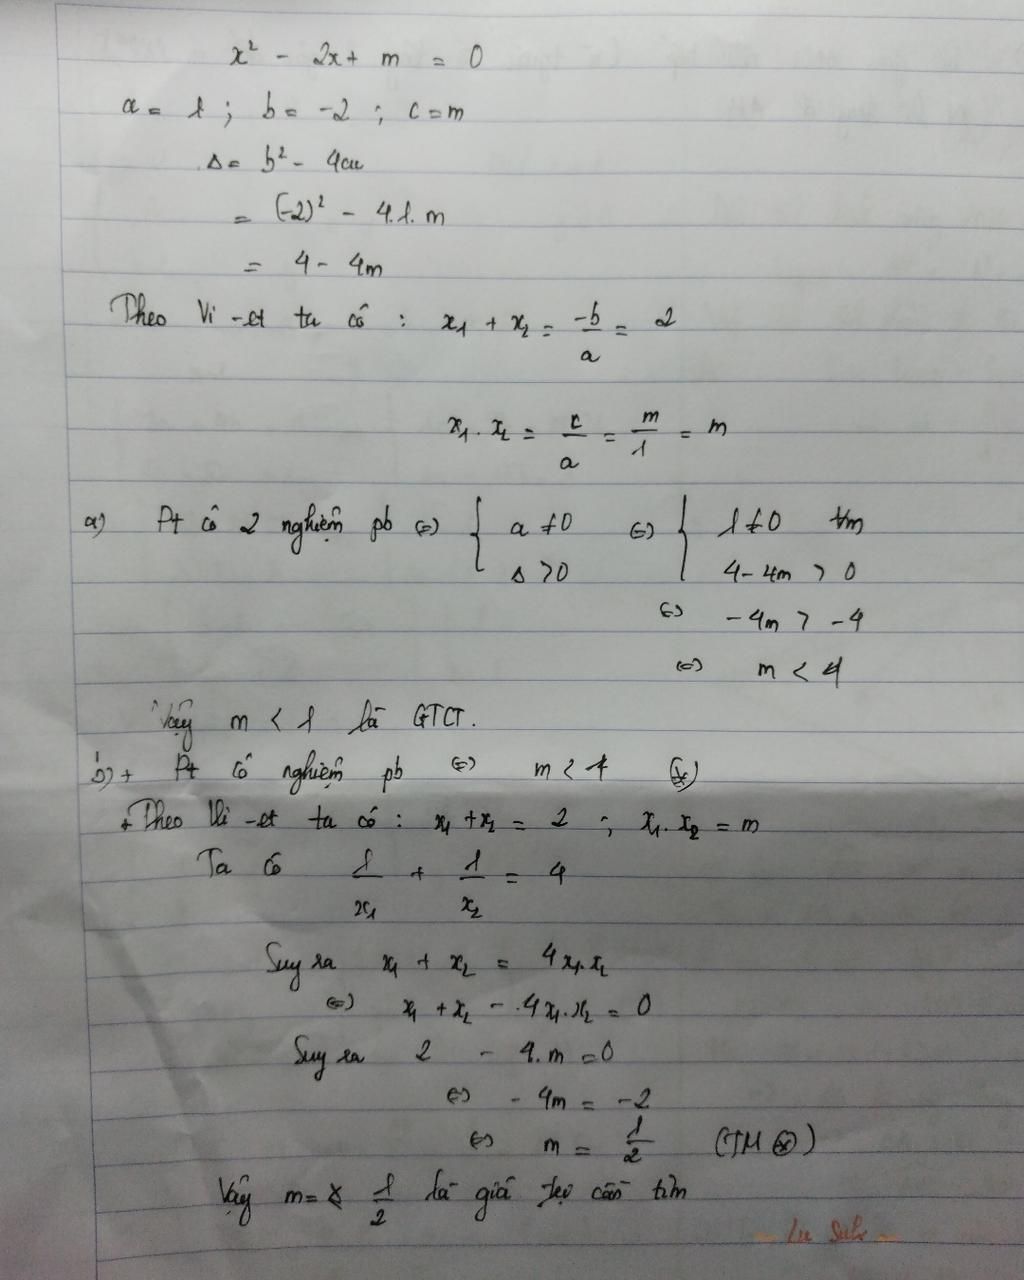 x² - 2x + m = 0
a = 1 ; b = -2 ; c = m
Δ = b² - 4ac
= (-2)² - 4.1.m
= 4 - 4m
Theo Vi-et ta có : x₁ + x₂ = -b/a = 2
x₁ . x₂ = c/a = m/1 = m
a) Pt có 2 nghiệm pb (=) { a ≠ 0 (=) { 1 ≠ 0 tm
Δ > 0 4 - 4m > 0
(=) - 4m > -4
(=) m < 1
Vậy m < 1 là GTCT.
b) + Pt có nghiệm pb (=) m < 1 (*)
+ Theo Vi-et ta có : x₁ + x₂ = 2 ; x₁ . x₂ = m
Ta có 1/x₁ + 1/x₂ = 4
Suy ra x₁ + x₂ = 4x₁.x₂
(=) x₁ + x₂ - 4x₁.x₂ = 0
Suy ra 2 - 4.m = 0
(=) - 4m = -2
(=) m = 1/2 (TM (*))
Vậy m = 1/2 là giá trị cần tìm